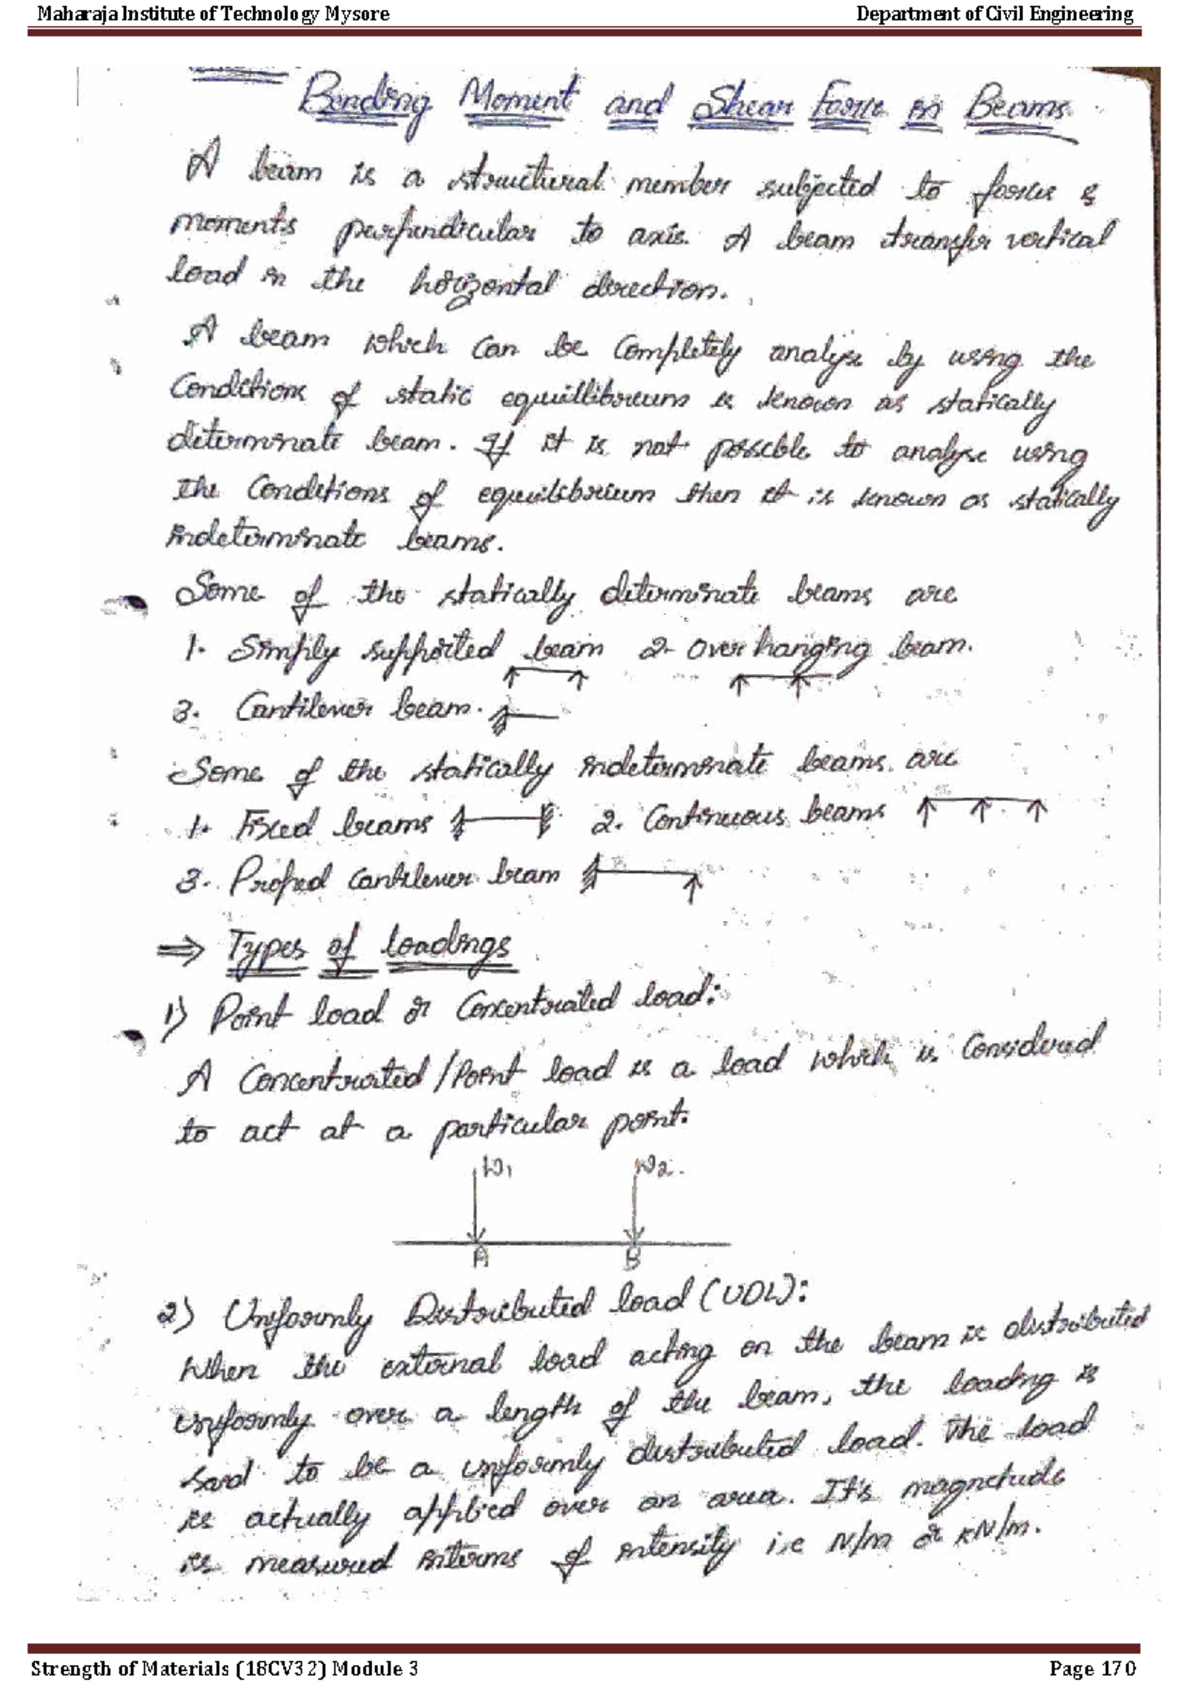 Maharaja Institute of Technology Mysore Department of Civil Engineering
Bending Moment and Shear Force in Beams
A beam is a structural member subjected to forces &
moments perpendicular to axis. A beam transfer vertical
load in the horizontal direction.
A beam which can be completely analyse by using the
Conditions of static equillibrium is known as statically
determinate beam. If it is not possible to analyse using
the Conditions of equilibrium then it is known as statically
indeterminate beams.
Some of the statically determinate beams are
1. Simply supported beam 2. Over hanging beam.
3. Cantilever beam.
Some of the statically indeterminate beams are
1. Fixed beams 2. Continuous beams
3. Proped cantilever beam
⇒ Types of loadings
1) Point load or Concentrated load:
A Concentrated/Point load is a load which is Considered
to act at a particular point.
W1 W2
A B
2) Uniformly Distributed load (UDL):
When the external load acting on the beam is distributed
uniformly over a length of the beam, the loading is
said to be a uniformly distributed load. The load
is actually applied over an area. It's magnetude
is measured interms of intensity i.e N/m or kN/m.
Strength of Materials (18CV32) Module 3 Page 170